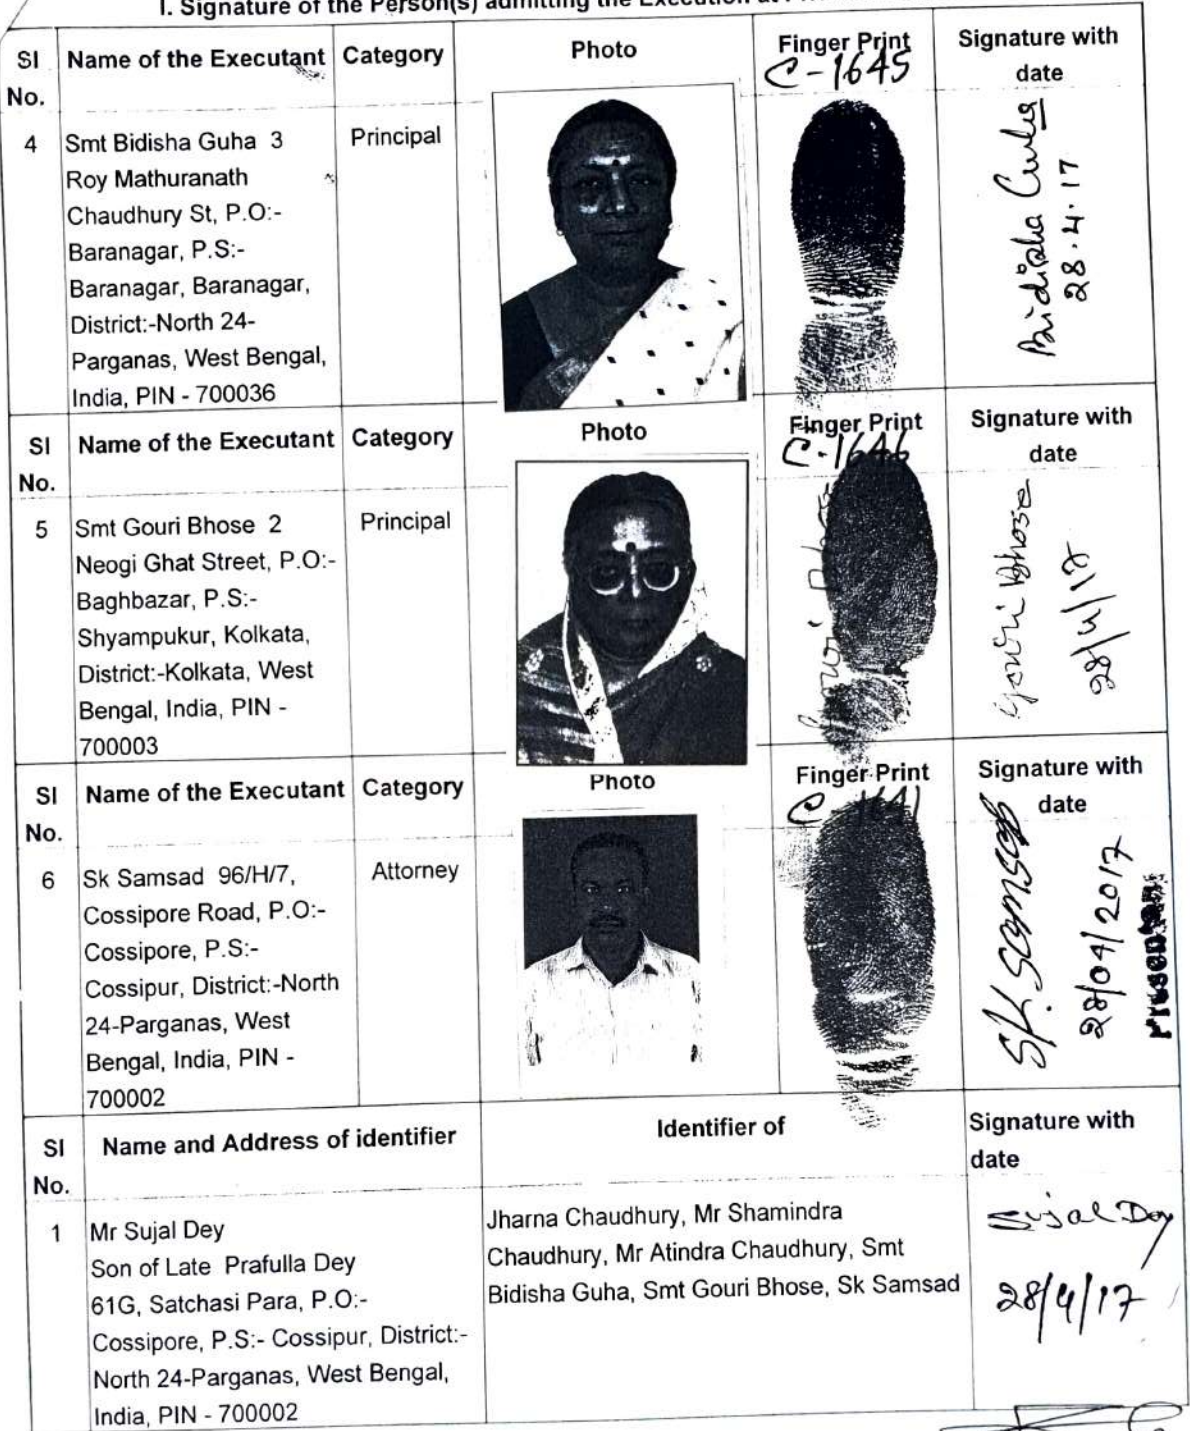 I. Signature of the Person(s) admitting the Execution at
Sl No. Name of the Executant Category Photo Finger Print Signature with date
C-1645
4 Smt Bidisha Guha 3 Principal
Roy Mathuranath
Chaudhury St, P.O:-
Baranagar, P.S:-
Baranagar, Baranagar,
District:-North 24-
Parganas, West Bengal,
India, PIN - 700036
Bidisha Guha
28.4.17
Sl No. Name of the Executant Category Photo Finger Print Signature with date
C-1646
5 Smt Gouri Bhose 2 Principal
Neogi Ghat Street, P.O:-
Baghbazar, P.S:-
Shyampukur, Kolkata,
District:-Kolkata, West
Bengal, India, PIN -
700003
Gouri Bhose
Gouri Bhose
28/4/17
Sl No. Name of the Executant Category Photo Finger Print Signature with date
6 Sk Samsad 96/H/7, Attorney
Cossipore Road, P.O:-
Cossipore, P.S:-
Cossipur, District:-North
24-Parganas, West
Bengal, India, PIN -
700002
SK. Samsad
28/04/2017
Sl No. Name and Address of identifier Identifier of Signature with date
1 Mr Sujal Dey
Son of Late Prafulla Dey
61G, Satchasi Para, P.O:-
Cossipore, P.S:- Cossipur, District:-
North 24-Parganas, West Bengal,
India, PIN - 700002
Jharna Chaudhury, Mr Shamindra
Chaudhury, Mr Atindra Chaudhury, Smt
Bidisha Guha, Smt Gouri Bhose, Sk Samsad
Sujal Dey
28/4/17